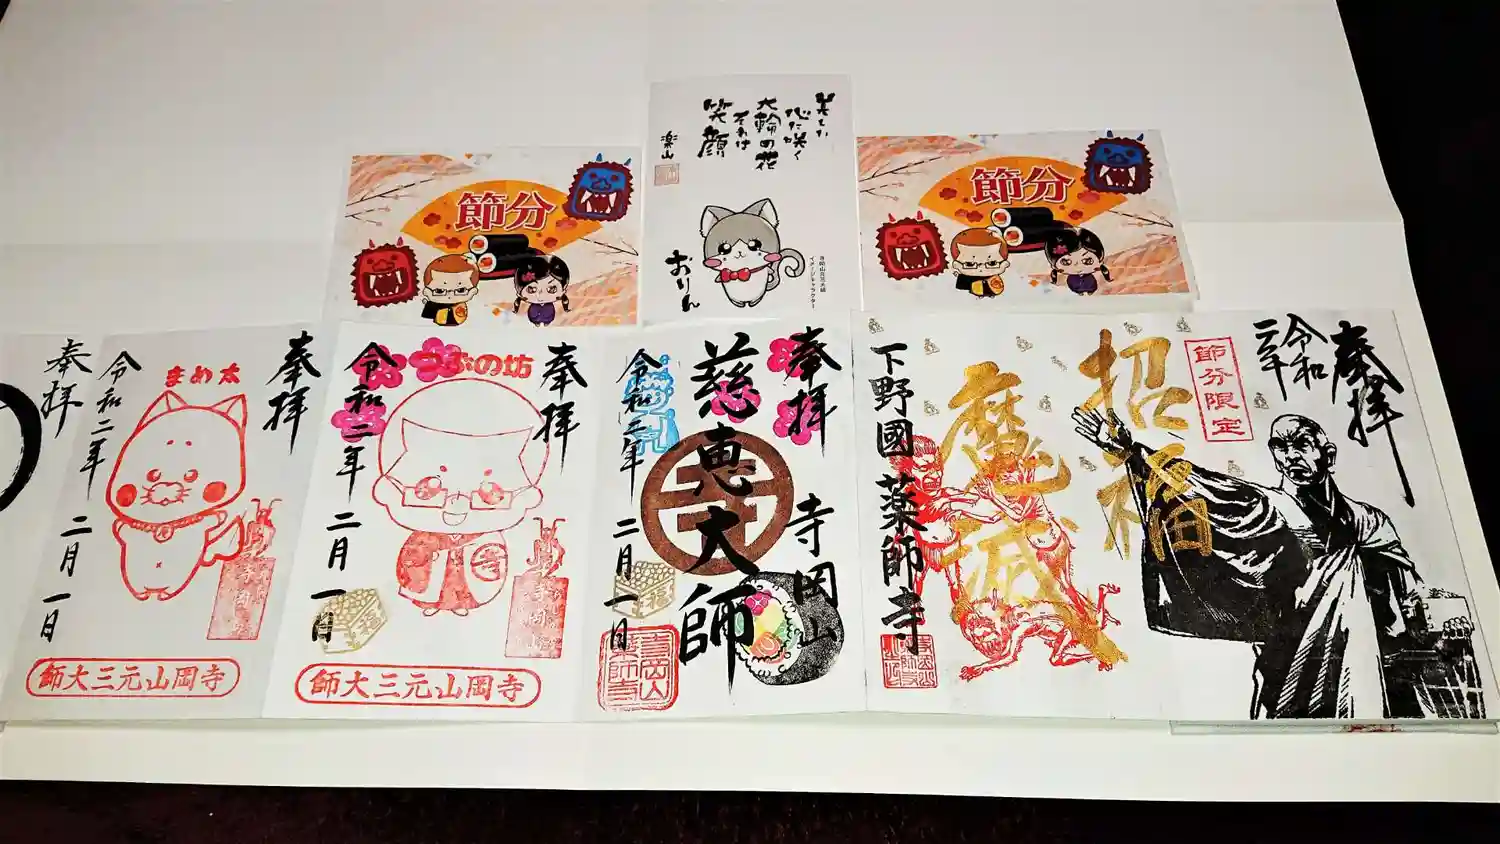 笑て
心に咲く
大輪の花
それは
笑顔
楽山
おりん
寺岡山元三大師
イメージキャラクター
節分
節分
奉拝
令和二年
節分限定
招福
魔滅
下野國薬師寺
奉拝
寺岡山
慈恵大師
令和二年
二月一日
奉拝
つぶの坊
令和二年
二月一日
寺岡山元三大師
奉拝
まめ太
令和二年
二月一日
寺岡山元三大師
奉拝